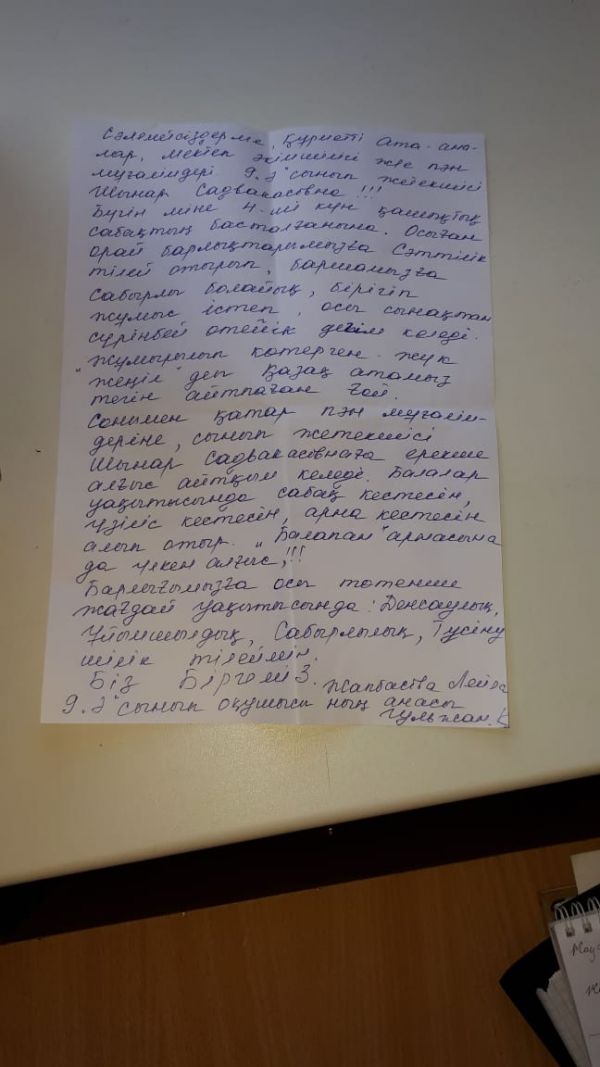 Сәлеметсіздерме, Құрметті Ата-ана-
лар, мектеп әкімшілігі және пән
мұғалімдері. 9."Ә" сынып жетекшісі
Шынар Садвакасовна !!!
Бүгін міне 4-ші күн қашықтық
сабақтың басталғанына. Осыған
орай барлықтарымызға Сәттілік
тілей отырып, баршамызға
сабырлы болайық, бірігіп
жұмыс істеп, осы сынақтан
сүрінбей өтейік дегім келеді.
"Жұмырылып көтерген жүк
жеңіл" деп қазақ атамыз
тегін айтпаған ғой.
Сонымен қатар пән мұғалім-
деріне, сынып жетекшісі
Шынар Садвакасовнаға ерекше
алғыс айтқым келеді. Балалар
уақытысында сабақ кестесін,
үзіліс кестесін, арна кестесін
алып отыр. "Балапан" арнасына
да үлкен алғыс,!!!
Барлығымызға осы төтенше
жағдай уақытысында: Денсаулық,
Ұйымшылдық, Сабырлылық, Түсіну
шілік тілеймін.
Біз Біргеміз.
9."Ә" сынып оқушысы ның анасы
Гульжан.К